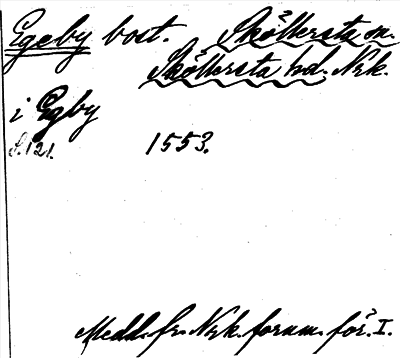 Egeby bost. Sköllersta sn.
Sköllersta hd. Nrk.
i Egby
s. 121. 1553.
Medd. fr. Nrk. fornm. för. I.